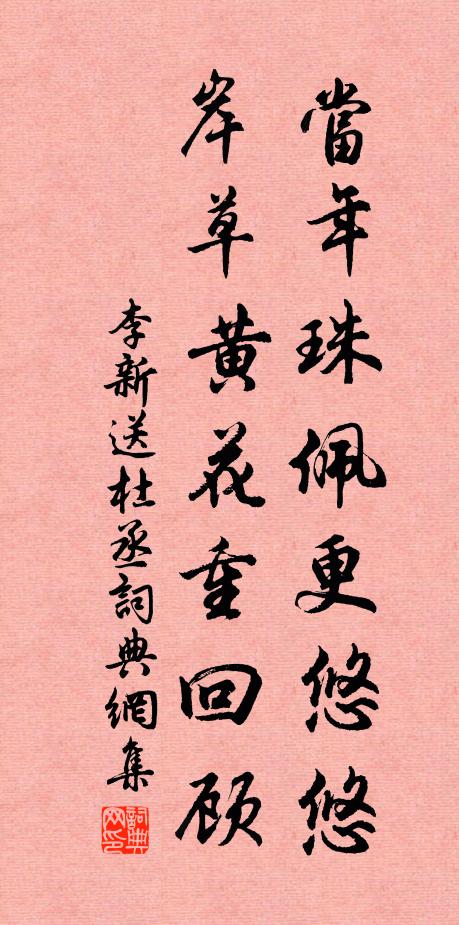 當年珠佩更悠悠
岸草黃花重回顾
李新送杜丞詞典網集
詞典网印